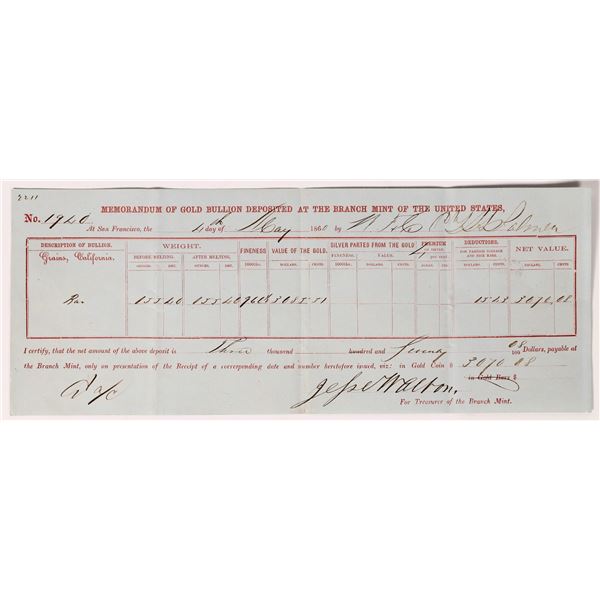 2211
MEMORANDUM OF GOLD BULLION DEPOSITED AT THE BRANCH MINT OF THE UNITED STATES,
No. 1940
At San Francisco, the 4th day of May 1860 by
DESCRIPTION OF BULLION. WEIGHT. FINENESS VALUE OF THE GOLD. SILVER PARTED FROM THE GOLD PREMIUM DEDUCTIONS. NET VALUE.
Grains, California. BEFORE MELTING. AFTER MELTING. 1000ths. FINENESS. VALUE. FOR PARTING COINAGE
OUNCES. DEC. OUNCES. DEC. DOLLARS. CENTS. 1000ths. DOLLARS. CENTS. DOLLARS. CENTS. DOLLARS. CENTS.
155 40 155 40 3085 51 15 43 3070 08
I certify, that the net amount of the above deposit is Three thousand hundred and Seventy 08/100 Dollars, payable at
the Branch Mint, only on presentation of the Receipt of a corresponding date and number heretofore issued, viz: in Gold Coin $ 3070 08
in Gold Bars $
Jesse Walton.
For Treasurer of the Branch Mint.